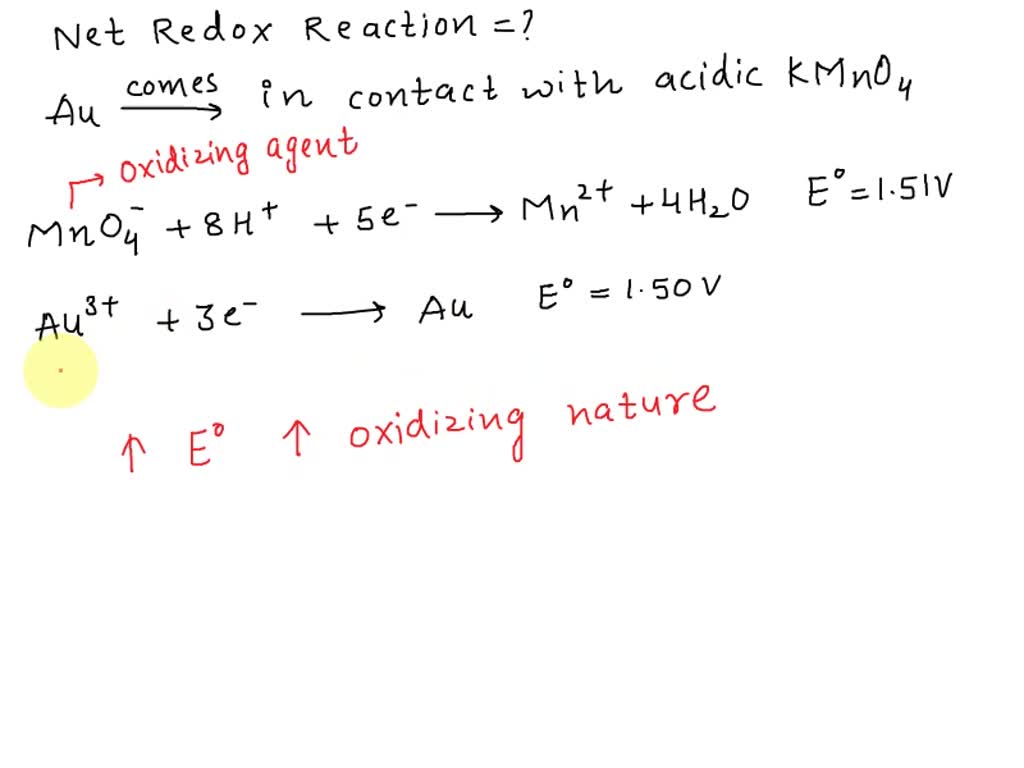 Net Redox Reaction = ?
Au comes → in contact with acidic KMnO₄
→ oxidizing agent
MnO₄⁻ + 8H⁺ + 5e⁻ → Mn²⁺ + 4H₂O E° = 1.51V
Au³⁺ + 3e⁻ → Au E° = 1.50 V
↑ E° ↑ oxidizing nature